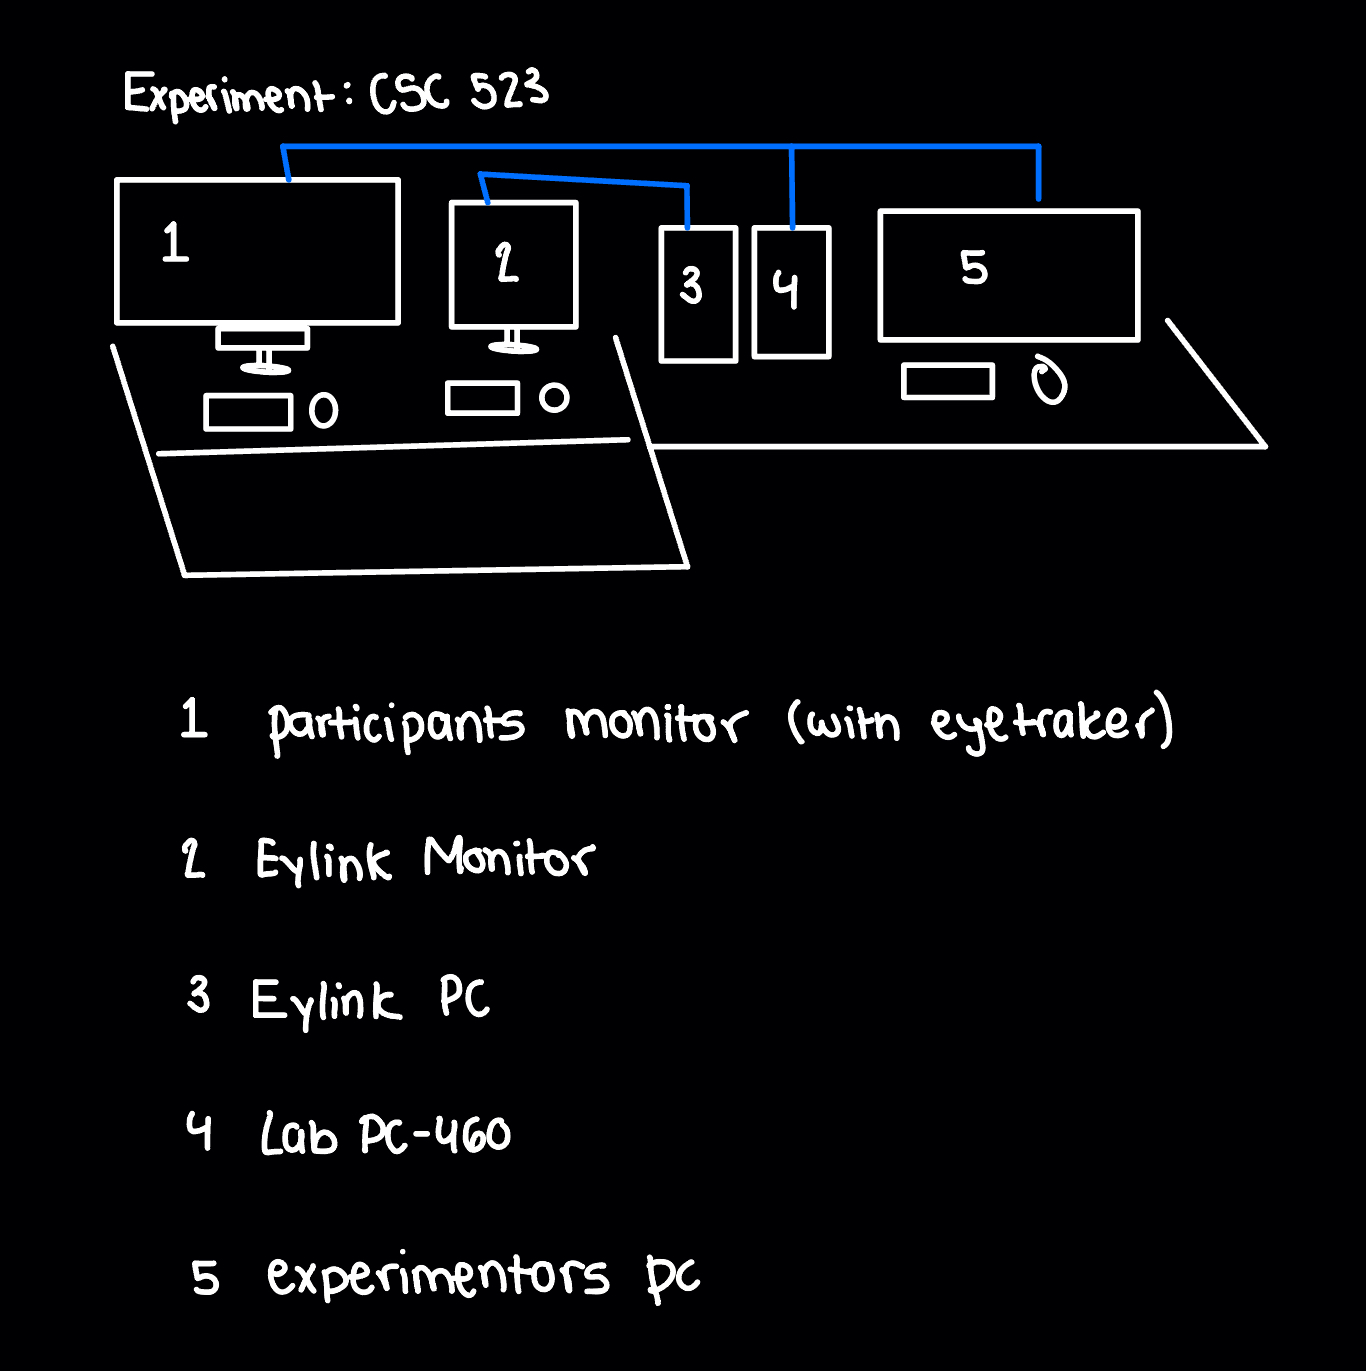 Experiment: CSC 523
1
2
3
4
5
1 participants monitor (with eyetraker)
2 Eylink Monitor
3 Eylink PC
4 Lab PC-460
5 experimentors pc